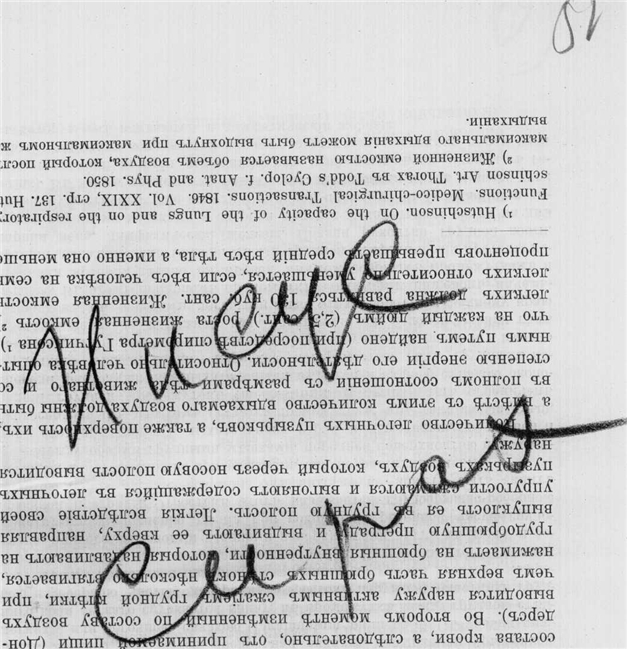 состава крови, а слѣдовательно, отъ принимаемой пищи (Дон-
дерсъ). Во второмъ моментѣ измѣненный по составу воздухъ
выводится наружу активнымъ сжатіемъ грудной клѣтки, при
чемъ верхняя часть брюшныхъ стѣнокъ нѣсколько втягивается,
нажимаетъ на брюшныя внутренности, которыя надавливаютъ на
грудобрюшную преграду и выдвигаютъ ее кверху, направляя
выпуклость ея въ грудную полость. Легкія вслѣдствіе своей
упругости сжимаются и выгоняютъ содержащійся въ легочныхъ
пузырькахъ воздухъ, который черезъ носовую полость выводится
наружу.
Количество легочныхъ пузырьковъ, а также поверхность ихъ,
а вмѣстѣ съ этимъ количество вдыхаемаго воздуха должны быть
въ полномъ соотношеніи съ размѣрами тѣла животнаго и со
степенью энергіи его дѣятельности. Относительно человѣка опыт-
нымъ путемъ найдено (при посредствѣ спирометра Гутчинсона ¹)
что на каждый дюймъ (2,5 сант.) роста жизненная емкость ²)
легкихъ должна равняться 130 куб. сант. Жизненная емкость
легкихъ относительно уменьшается, если вѣсъ человѣка на семь
процентовъ превышаетъ средній вѣсъ тѣла, а именно она меньше
¹) Hutchinson. On the capacity of the Lungs and on the respiratory
Functions. Medico-chirurgical Transactions. 1846. Vol. XXIX, стр. 137. Hut
schinson Art. Thorax въ Todd's Cyclop. f. Anat. and Phys. 1850.
²) Жизненной емкостью называется объемъ воздуха, который послѣ
максимальнаго вдыханія можетъ быть выдохнутъ при максимальномъ ж
выдыханіи.